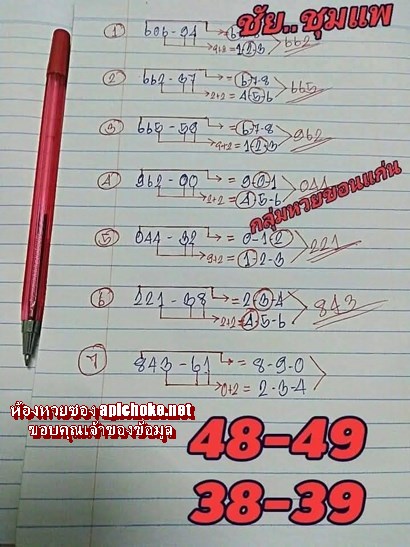 ชัย..ชุมแพ
① 606-94 = 6
9+8=1②3 662
② 662-37 = ⑥7-8
2+2=4⑤6 665
③ 665-59 = ⑥7-8
9+2=1②3 962
④ 962-00 = 9-⓪-1 044
2+2=④5-6
กลุ่มหวยขอนแก่น
⑤ 044-32 = 0-1② 221
9+2=①2-3
⑥ 221-38 = 2③4 843
2+2=④5-6
7 843-61 = 8-9-0
0+2=2-3-4
ห้องหวยซอง aplchoke.net
ขอบคุณเจ้าของข้อมูล
48-49
38-39